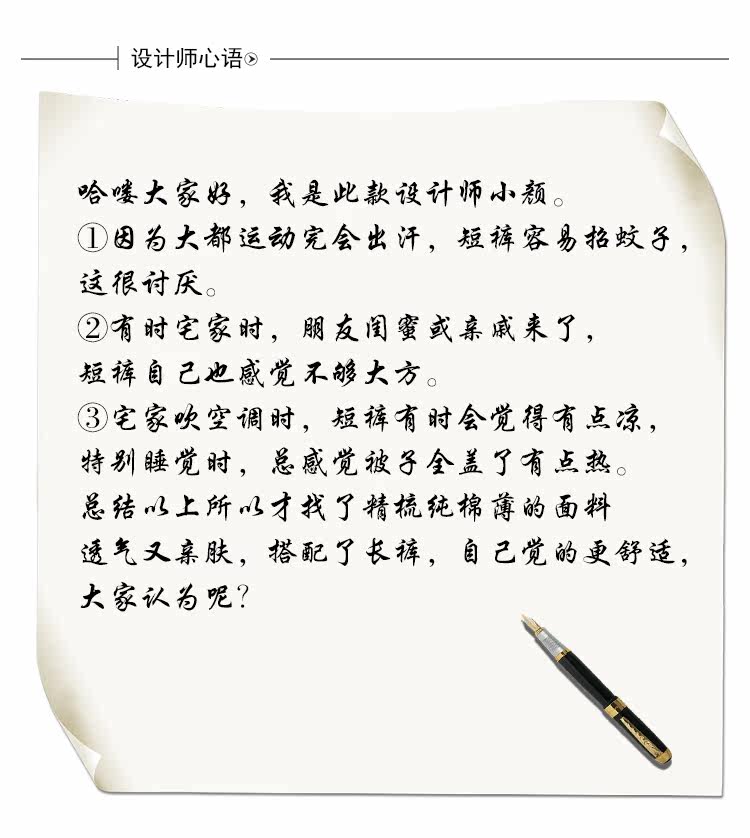 设计师心语
哈喽大家好，我是此款设计师小颜。
①因为大都运动完会出汗，短裤容易招蚊子，
这很讨厌。
②有时宅家时，朋友闺蜜或亲戚来了，
短裤自己也感觉不够大方。
③宅家吹空调时，短裤有时会觉得有点凉，
特别睡觉时，总感觉被子全盖了有点热。
总结以上所以才找了精梳纯棉薄的面料
透气又亲肤，搭配了长裤，自己觉的更舒适，
大家认为呢？